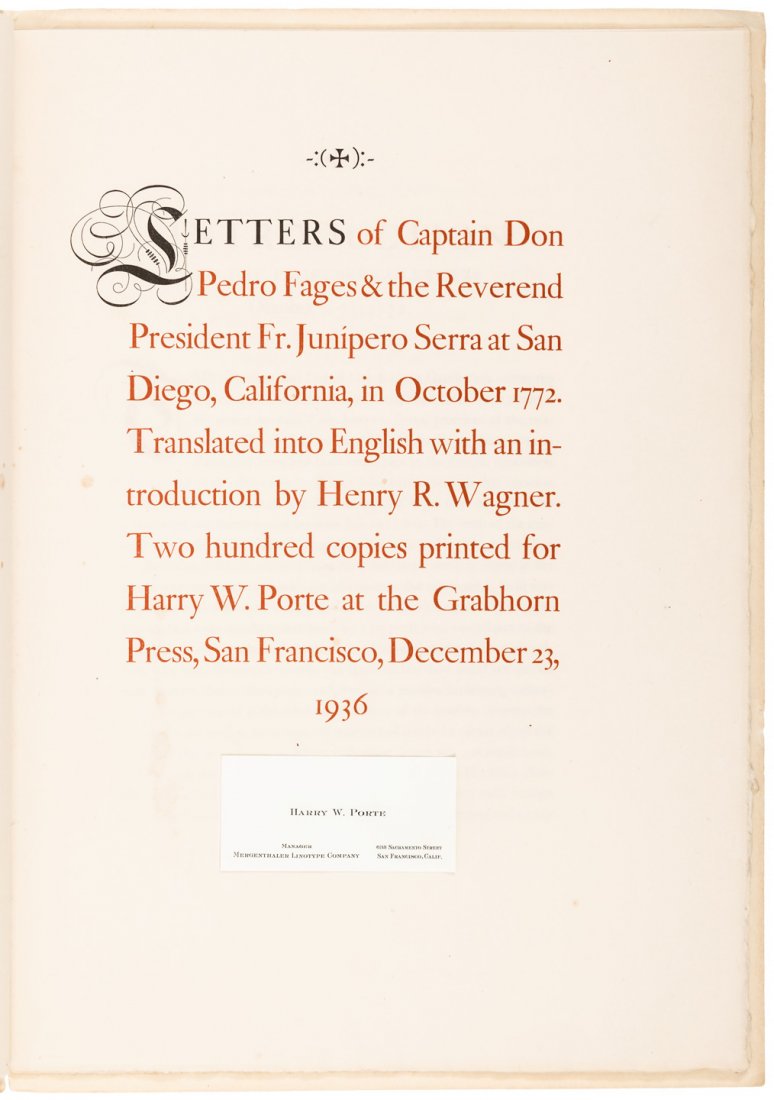 -:(✠):-
LETTERS of Captain Don
Pedro Fages & the Reverend
President Fr. Junípero Serra at San
Diego, California, in October 1772.
Translated into English with an in-
troduction by Henry R. Wagner.
Two hundred copies printed for
Harry W. Porte at the Grabhorn
Press, San Francisco, December 23,
1936
Harry W. Porte
Manager
Mergenthaler Linotype Company
Sacramento Street
San Francisco, Calif.